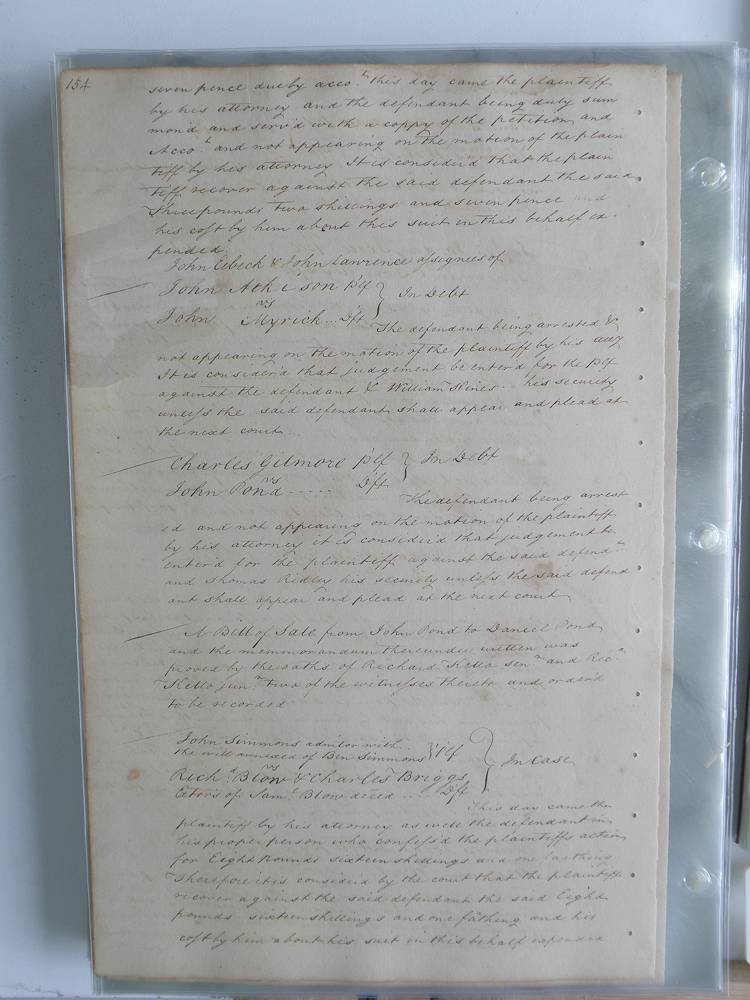 154
seven pence due by acco.t this day came the plaintiff
by his attorney and the defendant being duly sum
mond and serv'd with a coppy of the petition and
Acco.t and not appearing on the motion of the plain
tiff by his attorney It is consider'd that the plain
tiff recover against the said defendant the said
Three pounds two shillings and seven pence and
his cost by him about this suit in this behalf ex
pended
John Eebeck & John Lawrence assignees of
John Atkinson Plf } In Debt
vs
John Myrick ... Dft
The defendant being arrested &
not appearing on the motion of the plaintiff by his atty
It is consider'd that judgement be enter'd for the Plf
against the defendant & William Hines his security
unless the said defendant shall appear and plead at
the next court
Charles Gilmore Plf } In Debt
vs
John Pond ..... Dft
The defendant being arrest
ed and not appearing on the motion of the plaintiff
by his attorney it is consider'd that judgement be
enter'd for the plaintiff against the said defend.t
and Thomas Ridley his security unless the said defend
ant shall appear and plead at the next court
A Bill of Sale from John Pond to Daniel Pond
and the memmorandum thereunder written was
proved by the oaths of Richard Kello sen.r and Ric.d
Kello jun.r two of the witnesses thereto and order'd
to be recorded
John Simmons admitor with
the will annexed of Ben Simmons } Plf } In Case
vs
Rich.d Blow & Charles Briggs
Extors of Sam.l Blow deced ... Dft
This day came the
plaintiff by his attorney as well the defendant in
his proper person who confess'd the plaintiffs action
for Eight pounds sixteen shillings and one farthing
Therefore it is consider'd by the court that the plaintiff
recover against the said defendant the said Eight
pounds sixteen shillings and one fathing and his
cost by him about his suit in this behalf expended